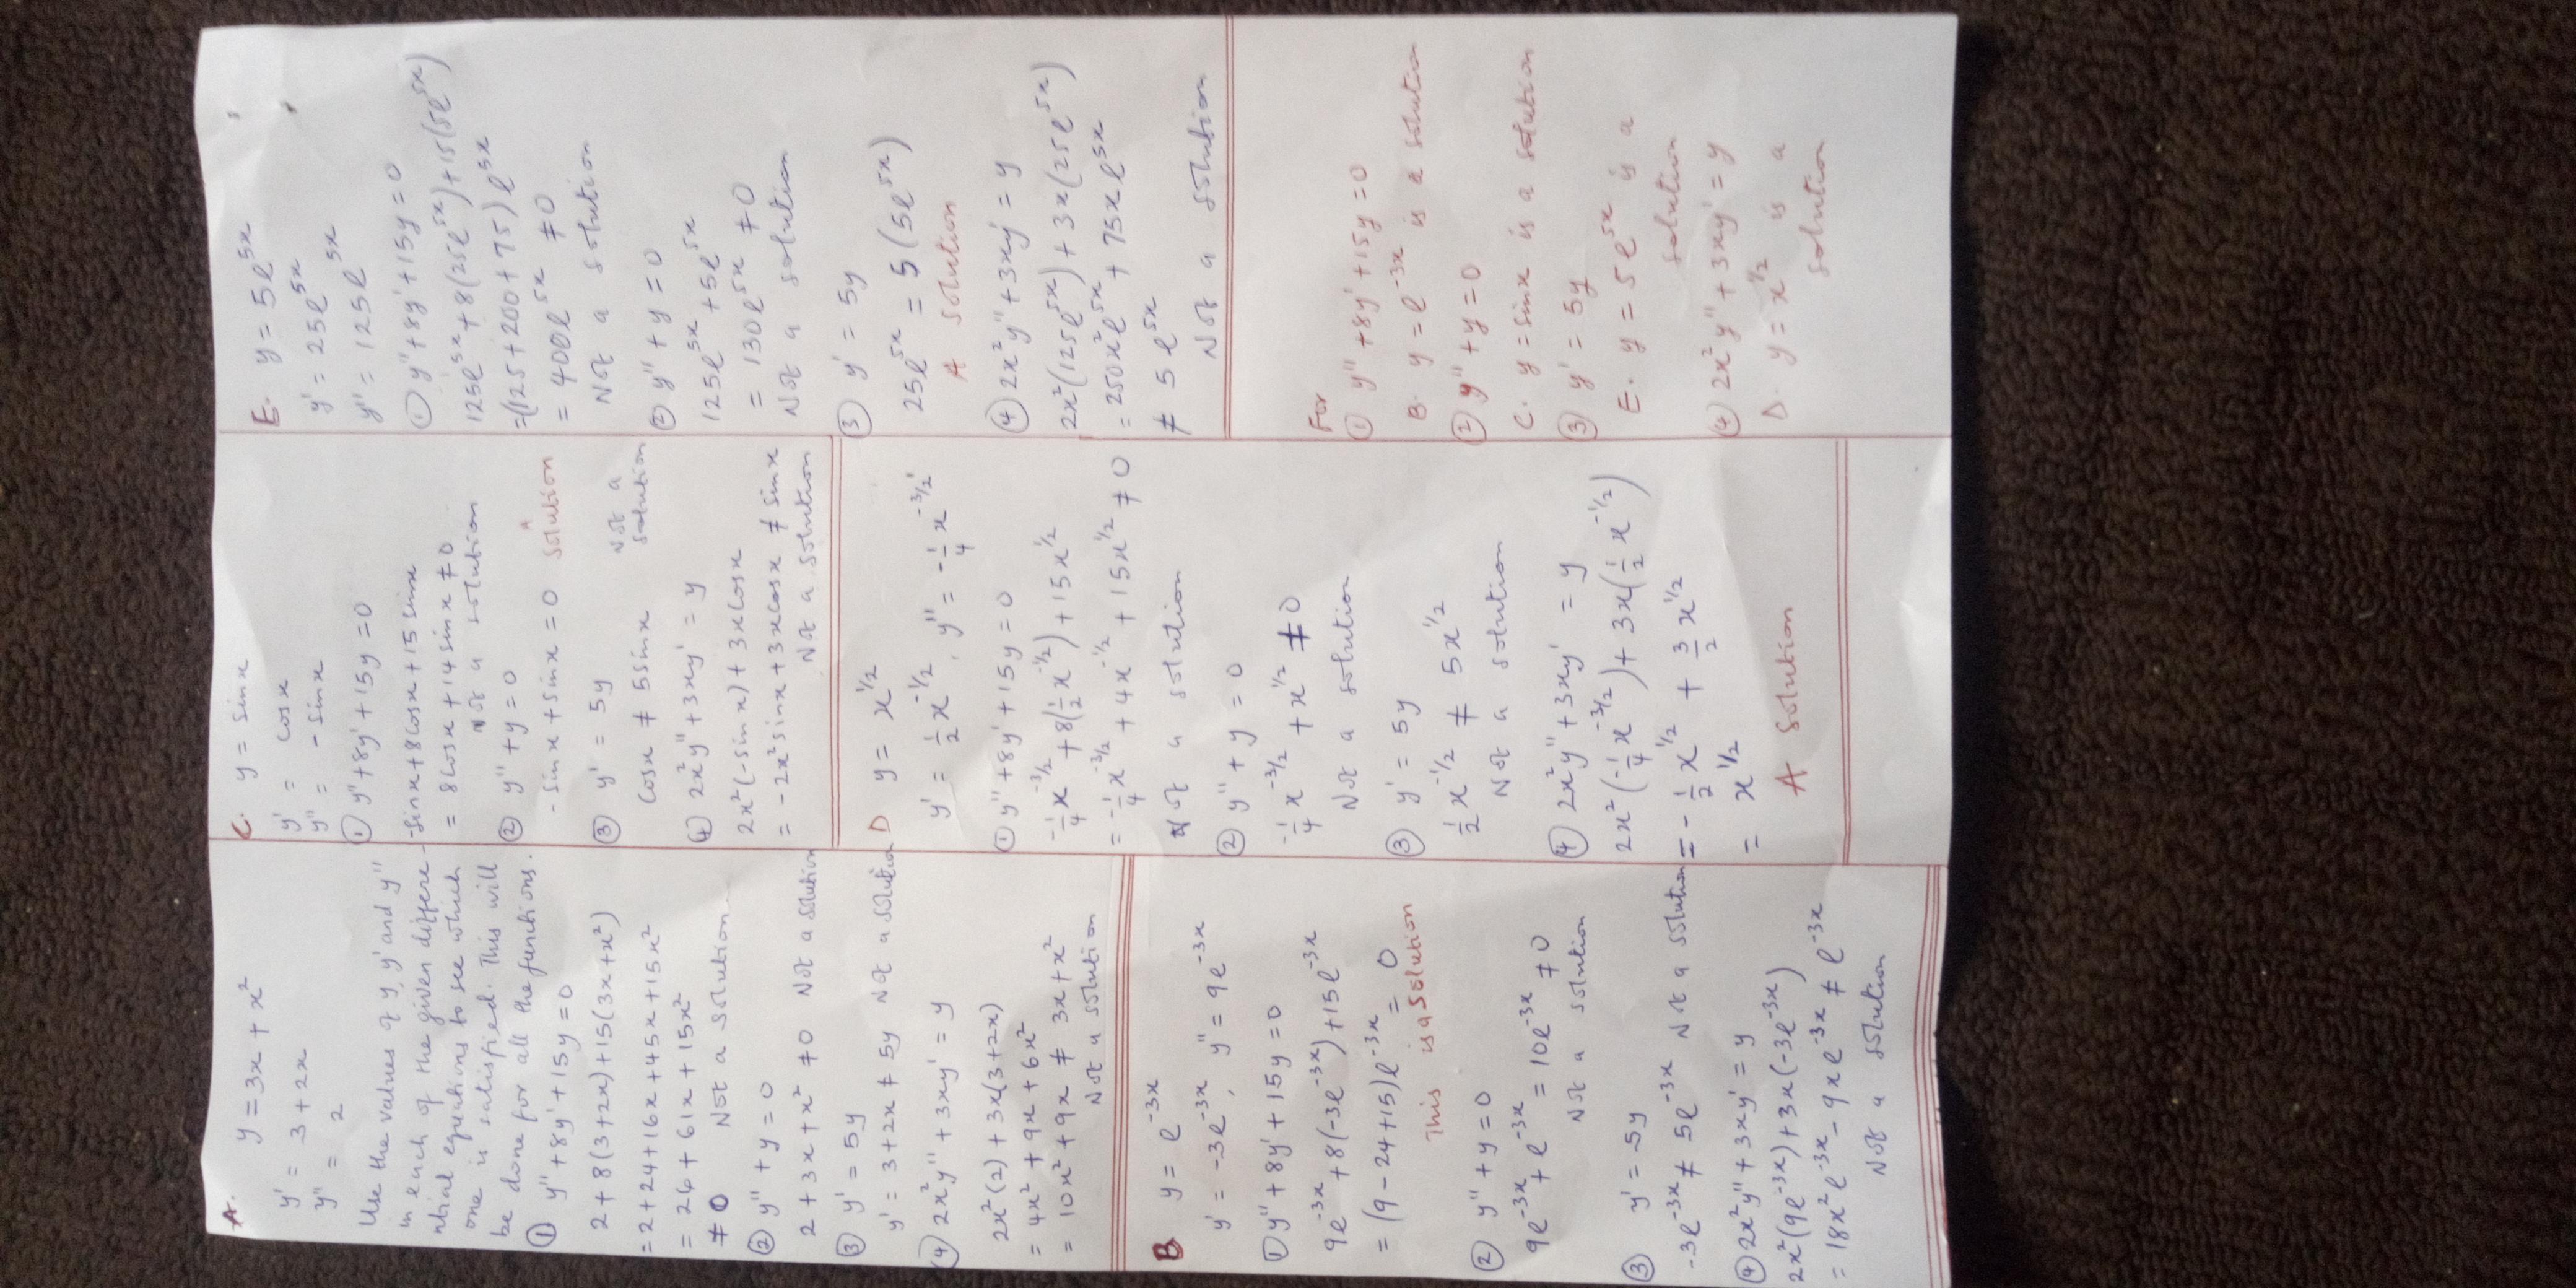 A. y = 3x + x²
y' = 3 + 2x
y'' = 2
Use the values of y, y' and y''
in each of the given differe-
ntial equations to see which
one is satisfied. This will
be done for all the functions.
① y'' + 8y' + 15y = 0
2 + 8(3+2x) + 15(3x + x²)
= 2 + 24 + 16x + 45x + 15x²
= 26 + 61x + 15x²
≠ 0 Not a solution.
② y'' + y = 0
2 + 3x + x² ≠ 0 Not a solution
③ y' = 5y
y' = 3 + 2x ≠ 5y Not a solution
④ 2x²y'' + 3xy' = y
2x²(2) + 3x(3+2x)
= 4x² + 9x + 6x²
= 10x² + 9x ≠ 3x + x²
Not a solution
B y = e⁻³ˣ
y' = -3e⁻³ˣ, y'' = 9e⁻³ˣ
① y'' + 8y' + 15y = 0
9e⁻³ˣ + 8(-3e⁻³ˣ) + 15e⁻³ˣ
= (9 - 24 + 15)e⁻³ˣ = 0
This is a solution
② y'' + y = 0
9e⁻³ˣ + e⁻³ˣ = 10e⁻³ˣ ≠ 0
Not a solution
③ y' = 5y
-3e⁻³ˣ ≠ 5e⁻³ˣ Not a solution
④ 2x²y'' + 3xy' = y
2x²(9e⁻³ˣ) + 3x(-3e⁻³ˣ)
= 18x²e⁻³ˣ - 9xe⁻³ˣ ≠ e⁻³ˣ
Not a solution
C. y = sinx
y' = cosx
y'' = - sinx
① y'' + 8y' + 15y = 0
-sinx + 8cosx + 15sinx
= 8cosx + 14sinx ≠ 0
Not a solution
② y'' + y = 0
- sinx + sinx = 0 A solution
③ y' = 5y
cosx ≠ 5sinx Not a solution
④ 2x²y'' + 3xy' = y
2x²(-sinx) + 3xcosx
= - 2x²sinx + 3xcosx ≠ sinx
Not a solution
D y = x^½
y' = ½x^-½, y'' = -¼x^-3/2
① y'' + 8y' + 15y = 0
-¼x^-3/2 + 8(½x^-½) + 15x^½
= -¼x^-3/2 + 4x^-½ + 15x^½ ≠ 0
Not a solution
② y'' + y = 0
-¼x^-3/2 + x^½ ≠ 0
Not a solution
③ y' = 5y
½x^-½ ≠ 5x^½
Not a solution
④ 2x²y'' + 3xy' = y
2x²(-¼x^-3/2) + 3x(½x^-½)
= -½x^½ + 3/2 x^½
= x^½
A solution
E. y = 5e⁵ˣ
y' = 25e⁵ˣ
y'' = 125e⁵ˣ
① y'' + 8y' + 15y = 0
125e⁵ˣ + 8(25e⁵ˣ) + 15(5e⁵ˣ)
=(125 + 200 + 75)e⁵ˣ
= 400e⁵ˣ ≠ 0
Not a solution
② y'' + y = 0
125e⁵ˣ + 5e⁵ˣ
= 130e⁵ˣ ≠ 0
Not a solution
③ y' = 5y
25e⁵ˣ = 5(5e⁵ˣ)
A solution
④ 2x²y'' + 3xy' = y
2x²(125e⁵ˣ) + 3x(25e⁵ˣ)
= 250x²e⁵ˣ + 75xe⁵ˣ
≠ 5e⁵ˣ
Not a solution
For
① y'' + 8y' + 15y = 0
B. y = e⁻³ˣ is a solution
② y'' + y = 0
C. y = sinx is a solution
③ y' = 5y
E. y = 5e⁵ˣ is a
solution
④ 2x²y'' + 3xy' = y
D. y = x^½ is a
solution